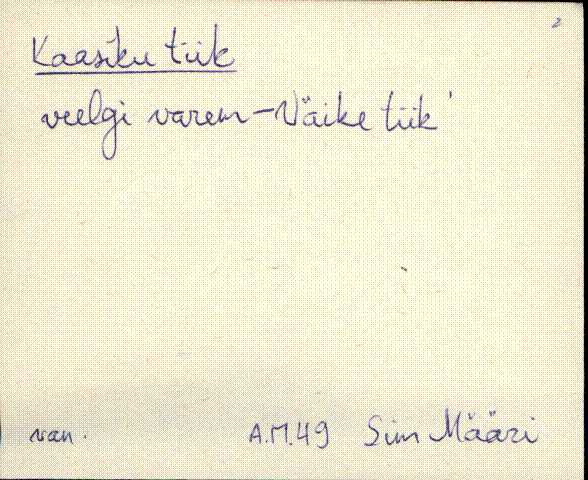 2
Kaasiku tiik
veelgi varem - Väike tiik'
van. A.M.49 Siim Määri